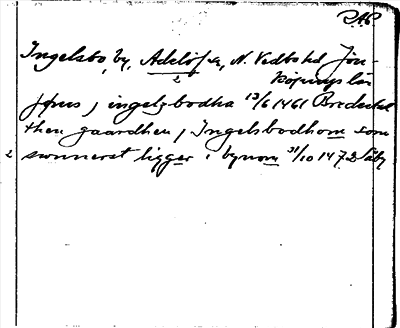 RAP.
Ingelsbo, by, Adelöfs, N. Vedbo hd Jön-
2 köpings län
fore j ingelzbodha 13/6 1461 Bredestad
then gaardhen j Ingelsbodhom som
2 sunnerst ligger i bynom 31/10 1472 Säby